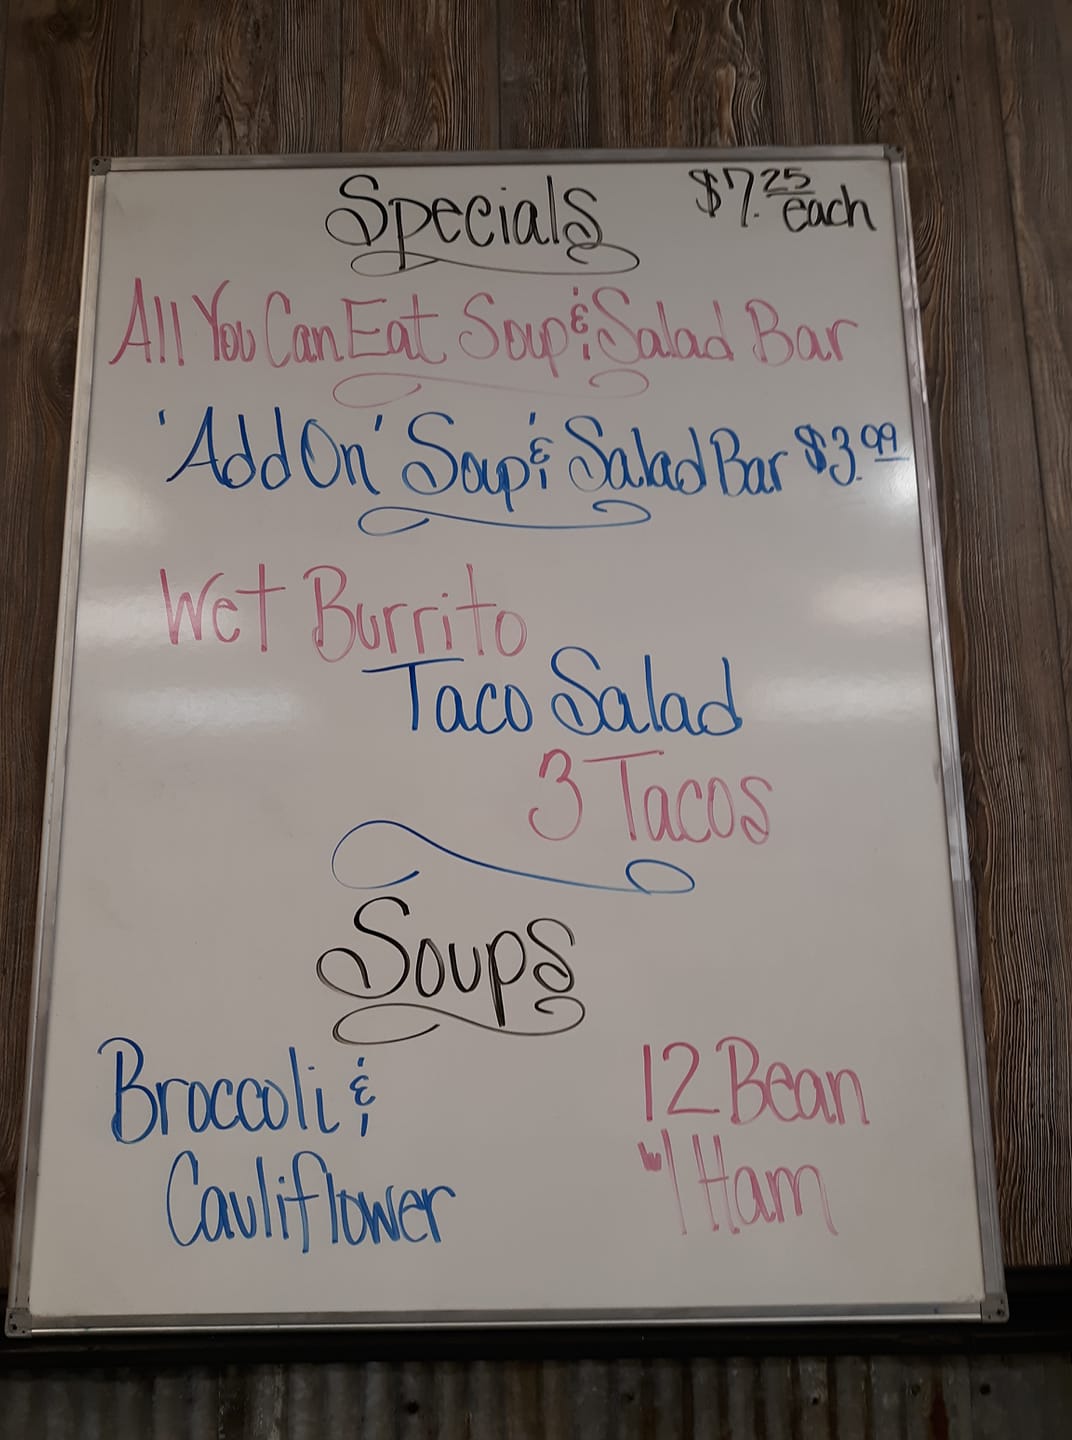 Specials $7.25 each
All You Can Eat Soup & Salad Bar
'Add On' Soup & Salad Bar $3.99
Wet Burrito
Taco Salad
3 Tacos
Soups
Broccoli &
Cauliflower
12 Bean
w/ Ham